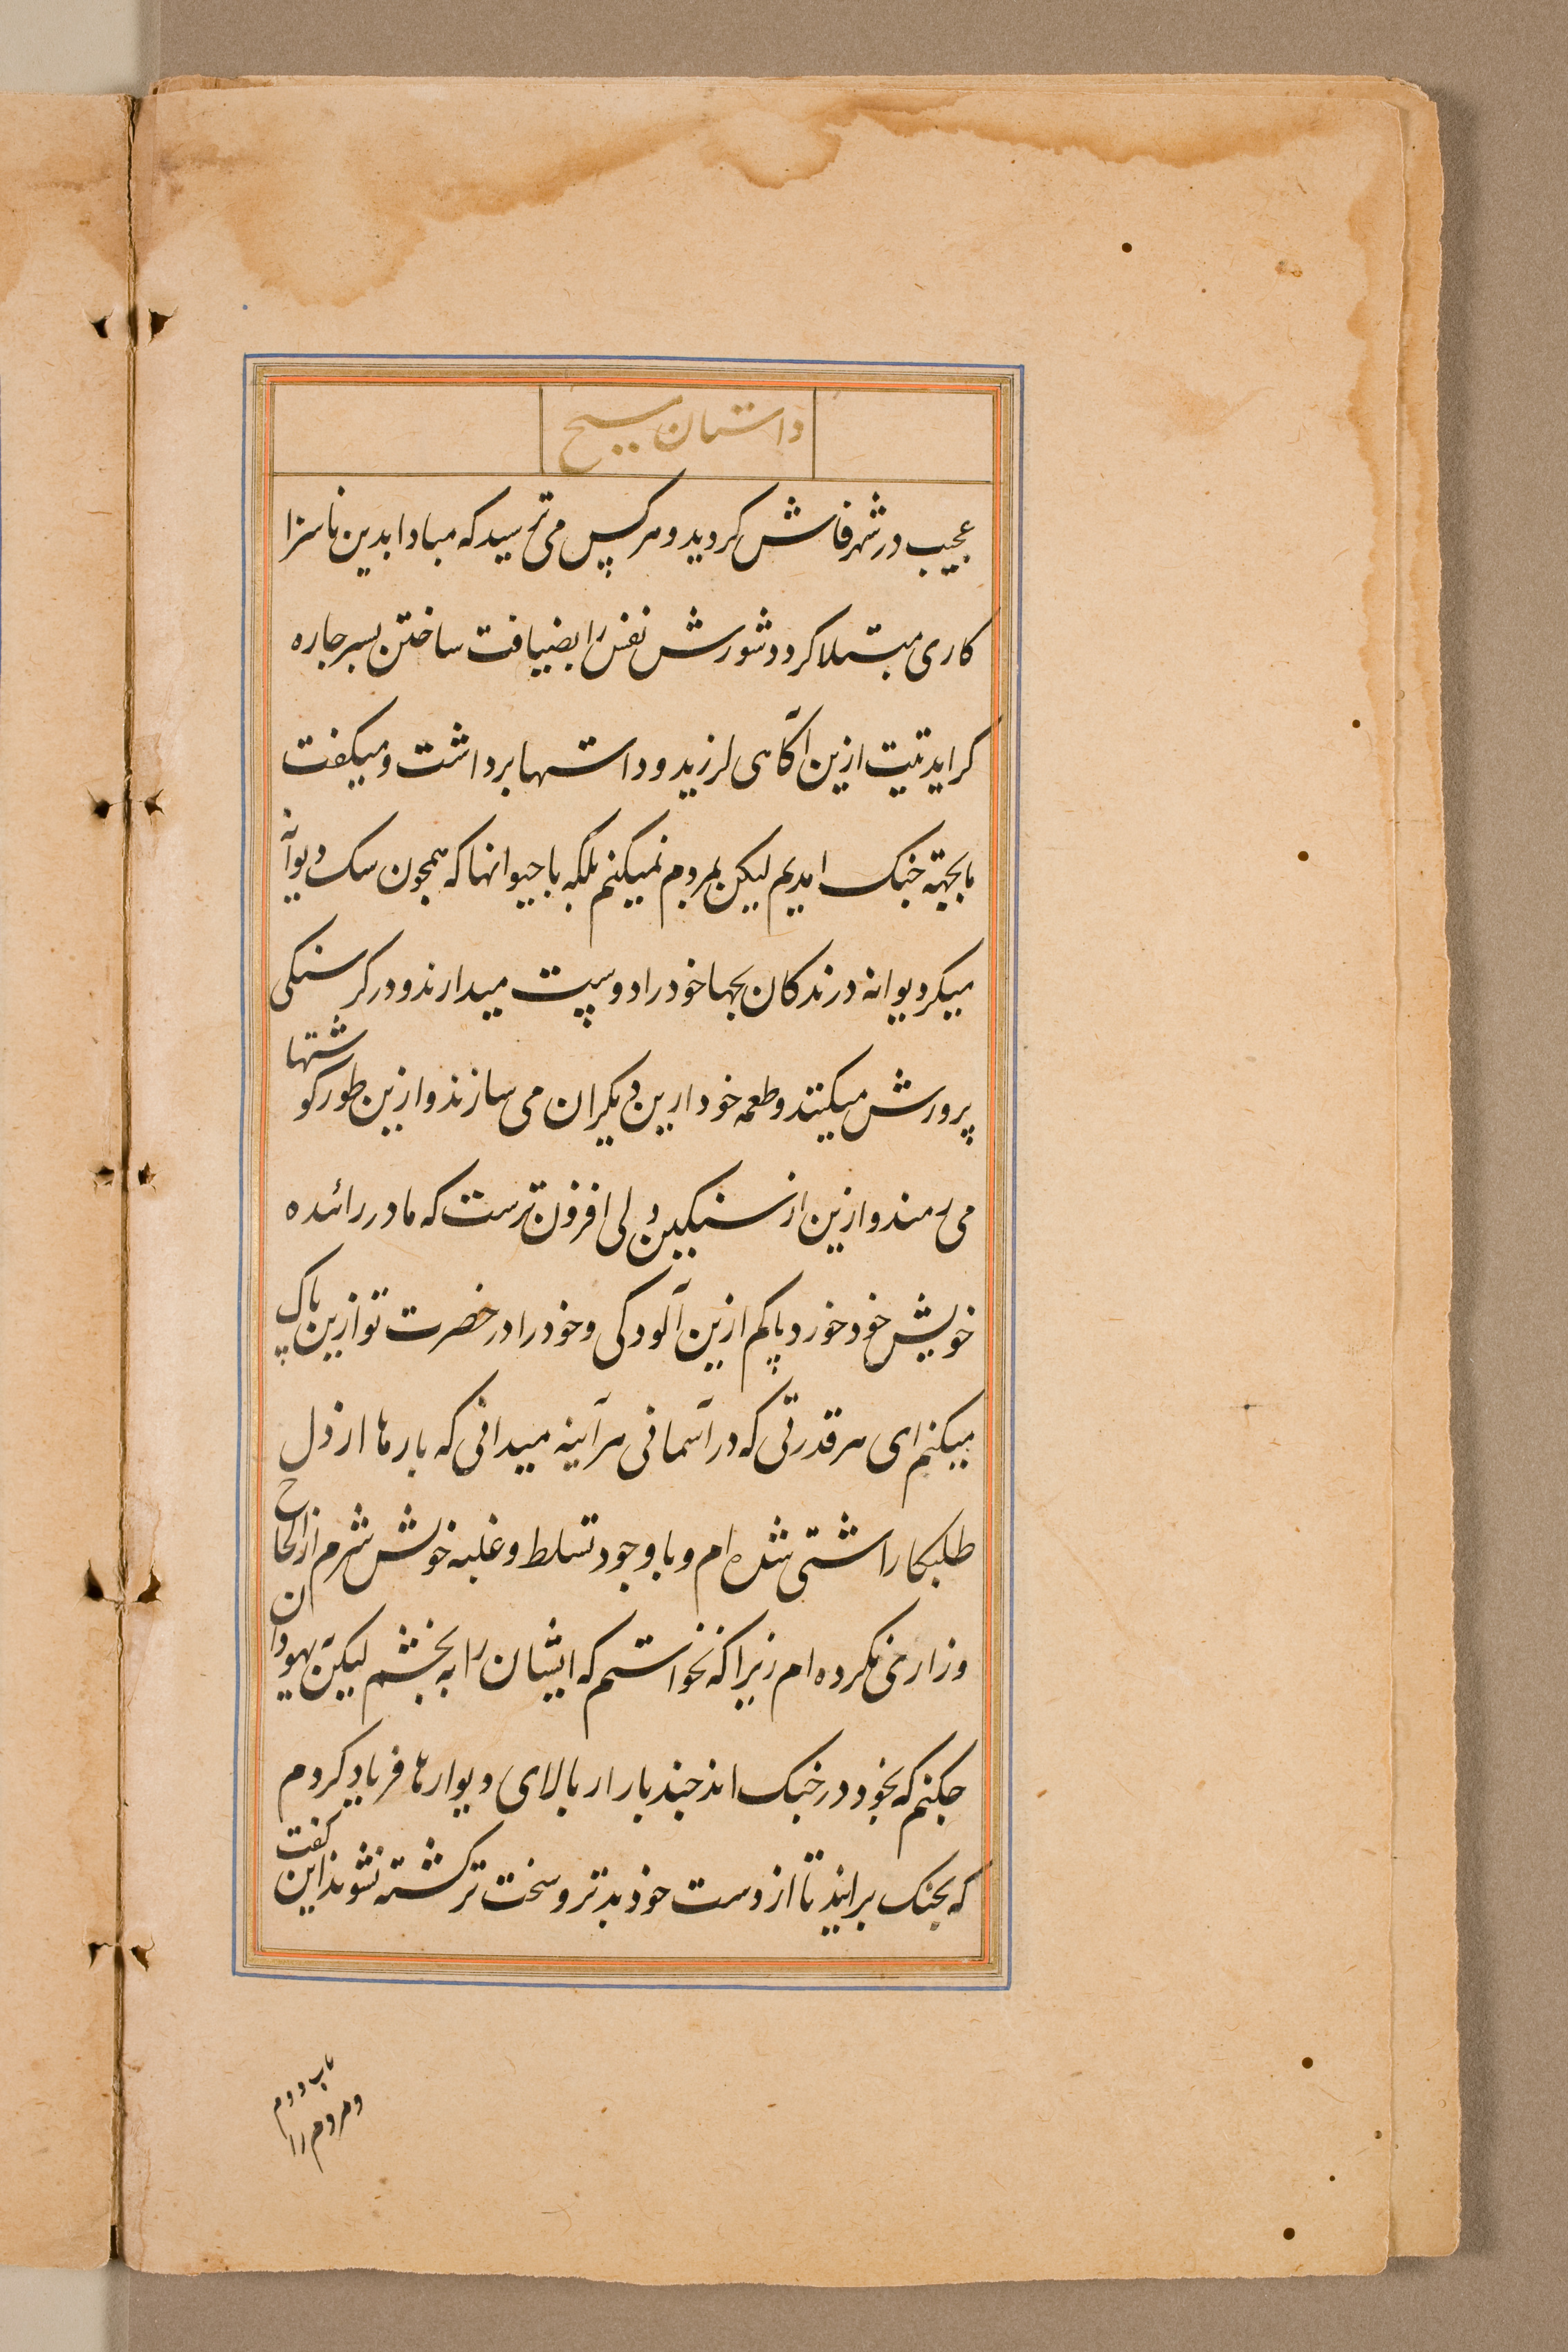 داستان مسیح
عجیب در شهر فاش کردید و هر کس می ترسید که مبادا بدین ناسزا
کاری مبتلا کردد شورش نفس را بضیافت ساختن بسر جاره
کراید تیت ازین آکاهی لرزید و دستها برداشت و میکفت
ما بجهة جنک امدیم لیکن بمردم نمیکنم بلکه با حیوانها که همچون سک دیوانه
میکرد یوانه درندکان بچها خود را دوست میدارند و در کرسنکی
پرورش میکنند و طعمه خود ازین دیکران می سازند و ازین طور کوشتها
می رمند و ازین از سنکین دلی افزون ترست که مادر زائده
خویش خود خورد پاکم ازین آلودکی و خود را در حضرت تو ازین پاک
میکنم ای هر قدرتی که در آسمانی هر آینه میدانی که بارها از دل
طلبکار اشتی شده ام و با وجود تسلط و غلبه خویش شرم از الحاح
و زاری نکرده ام زیرا که نخواستم که ایشان را به بخشم لیکن یهودان
جکنم که بخود در جنک اند جند بار از بالای دیوارها فریاد کردم
که بجنک برایند تا از دست خود بدتر و سخت تر کشته نشوند این کفت
باب دوم
و مردم را